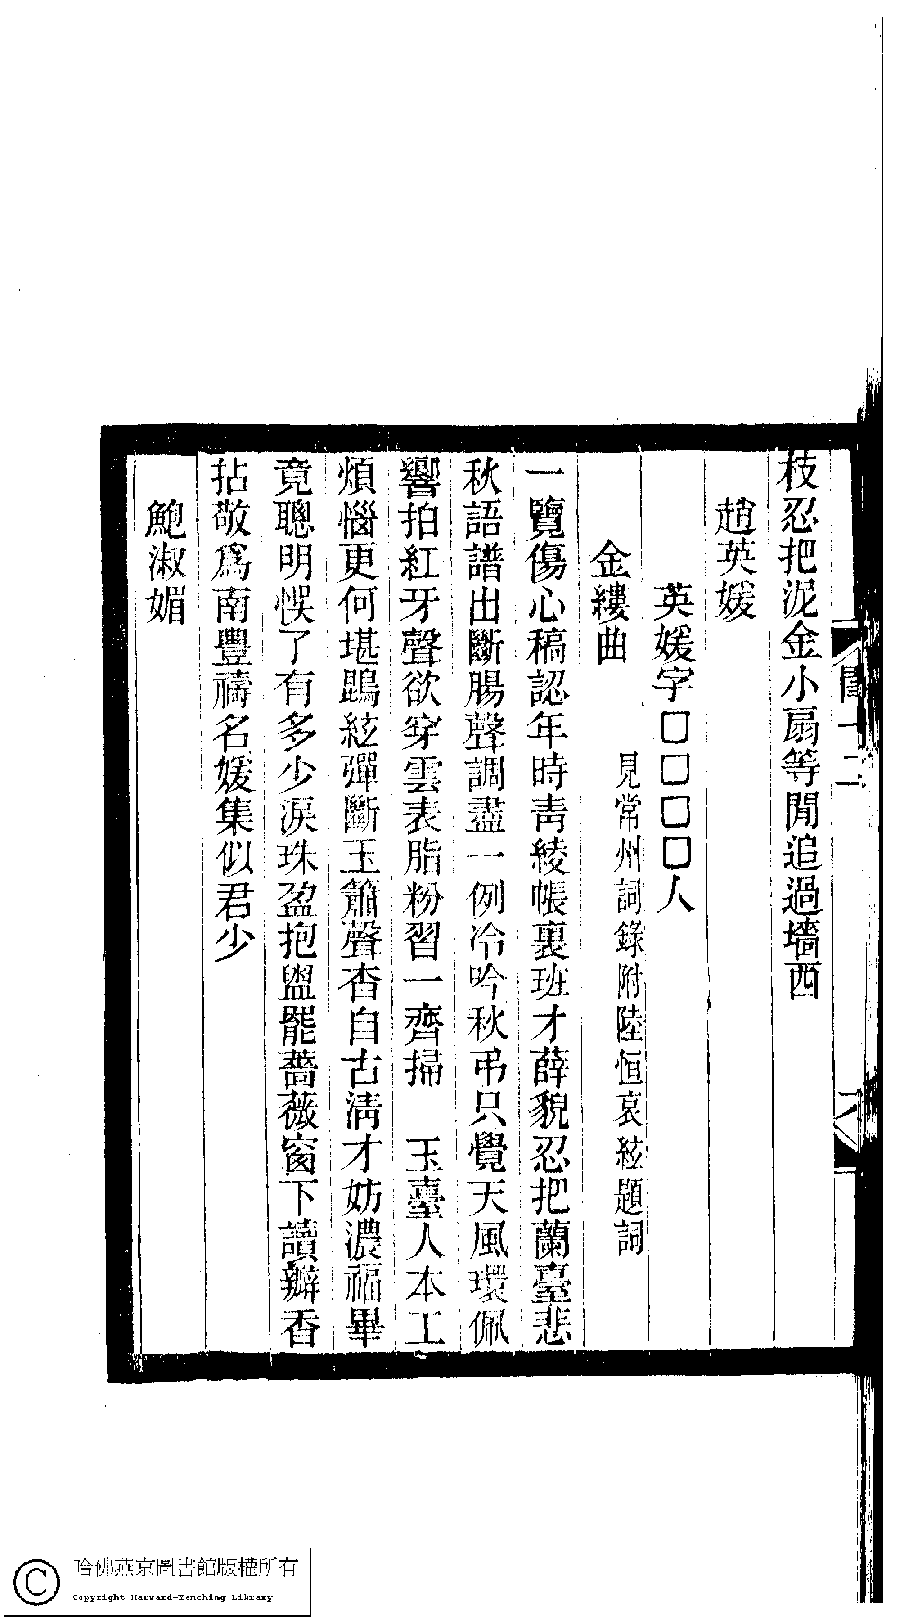 枝忍把泥金小扇等閒追過墻西
趙英媛
英媛字□□□□人
金縷曲 見常州詞錄附陸恒哀絃題詞
一覽傷心稿認年時靑綾帳裏班才薛貌忍把蘭臺悲
秋語譜出斷腸聲調盡一例冷吟秋弔只覺天風環佩
響拍紅牙聲欲穿雲表脂粉習一齊掃 玉臺人本工
煩惱更何堪鵾絃彈斷玉簫聲杳自古淸才妨濃福畢
竟聰明悞了有多少淚珠盈抱盥罷薔薇窗下讀瓣香
拈敬爲南豐禱名媛集似君少
鮑淑媚
哈佛燕京圖書館版權所有
Copyright Harvard-Yenching Library